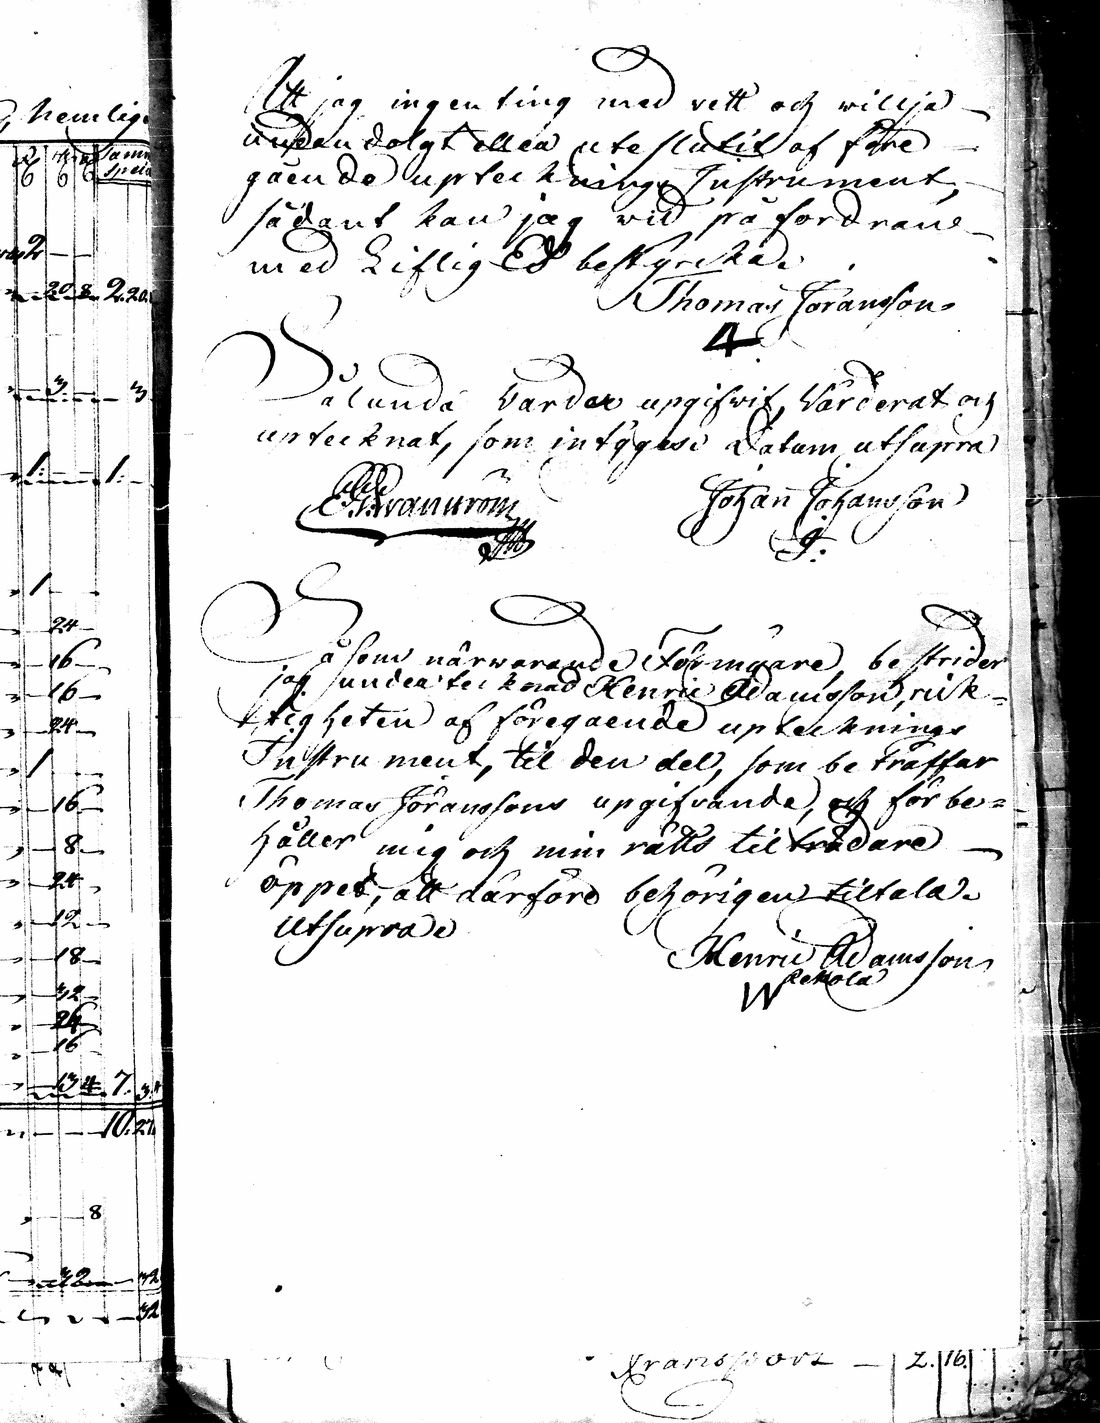 hemlige
Att jag ingen ting med vett och willja
undandolgt eller uteslutit af före
gående uptecknings Instrument,
sådant kan jag wid påfordran
med Liflig Ed bestyrcka.
Thomas Jöransson
4
Sålunda Varder upgifvit, Värderat och
uptecknat, som intygas Datum utsupra
Johan Johansson
J:
Såsom närwarande Förmyare, bestrider
jag undertecknad Henric Adamsson, rik-
tigheten af föregaende upteknings
Instrument, til den del, som beträffar
Thomas Jöranssons upgifvande, och förbe=
håller mig och min rätts tilträdare
öppet, att därföre behörigen tiltala.
Utsupra
Henric Adamsson
W Pekola
2
20 8 2.20.
3 3
1: 1:
1
24
16
16
24
1
16
8
24
12
18
32
24
16
13 4 7. 3.4
10.27
8
32 32
32
Transport 2. 16.